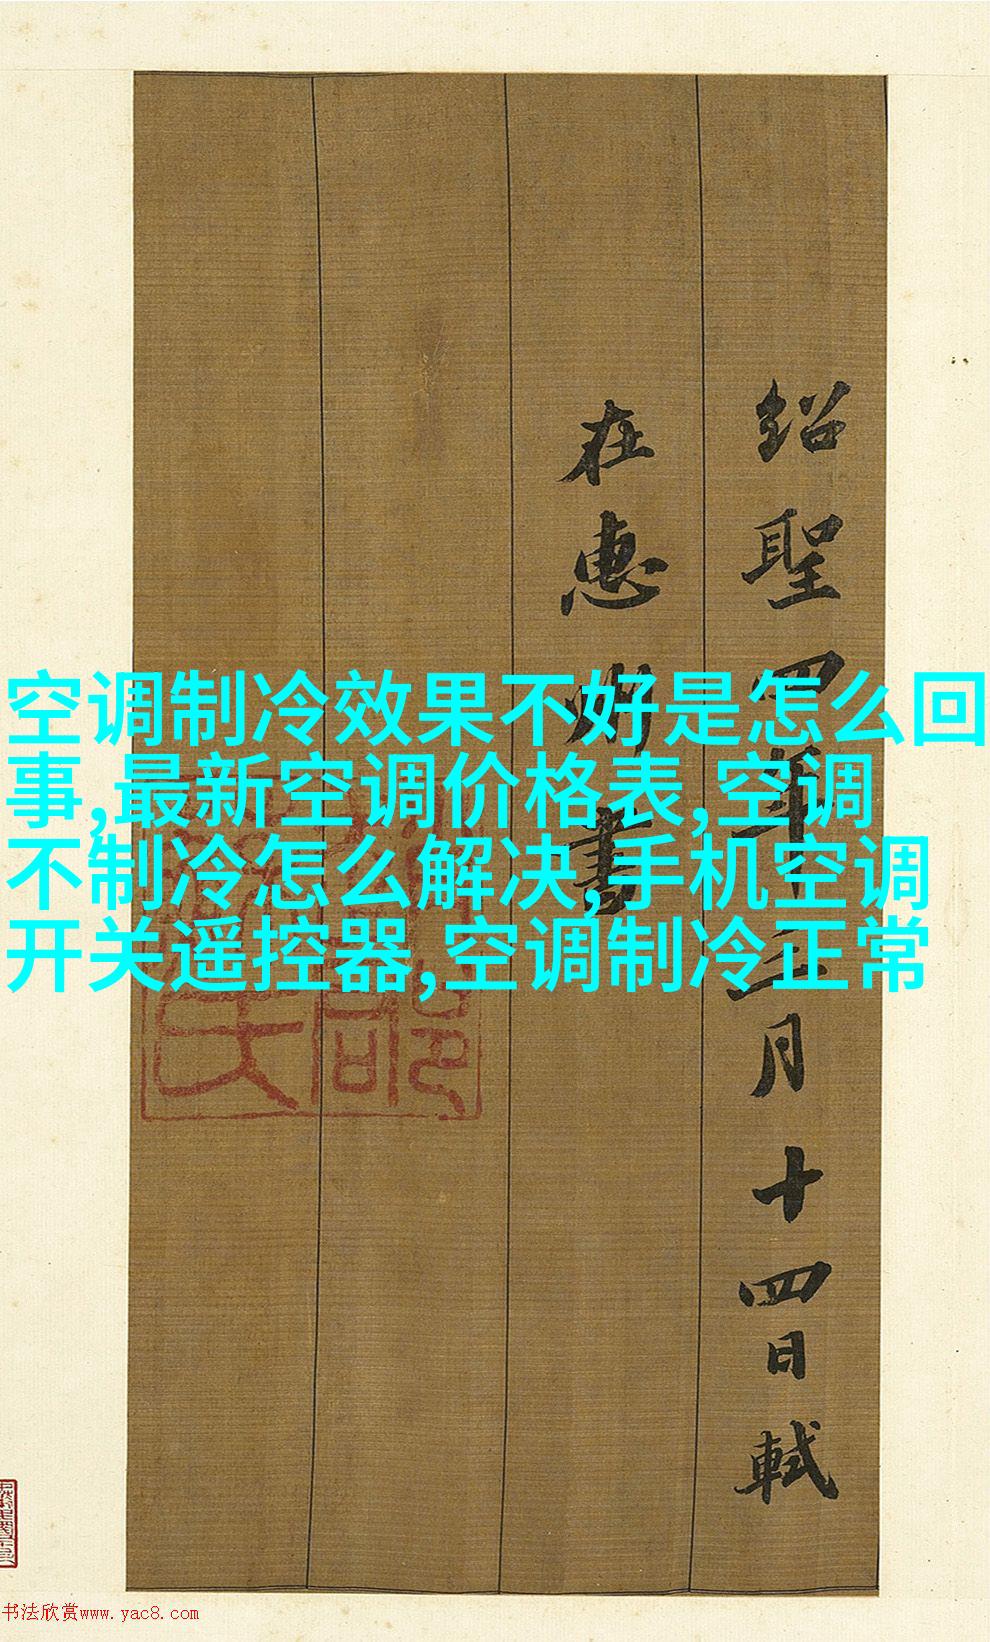 紹聖四年三月十四日軾
在惠州書
空调制冷效果不好是怎么回
事,最新空调价格表,空调
不制冷怎么解决,手机空调
开关遥控器,空调制冷正常
书法欣赏www.yac8.com